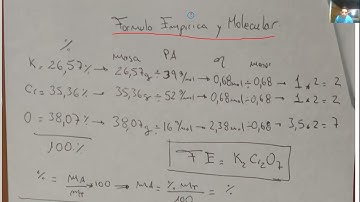 ①
Formula Empirica y Molecular
% masa PA n menor
K = 26,57% → 26,57g ÷ 39 g/mol → 0,68mol ÷ 0,68 → 1 . 2 = 2
Cr = 35,36% → 35,36g ÷ 52 g/mol → 0,68mol ÷ 0,68 → 1 . 2 = 2
O = 38,07% → 38,07g ÷ 16 g/mol → 2,38mol ÷ 0,68 → 3,5 . 2 = 7
100%
FE = K₂Cr₂O₇
% = MA/MT . 100 → MA = %.MT/100 = %